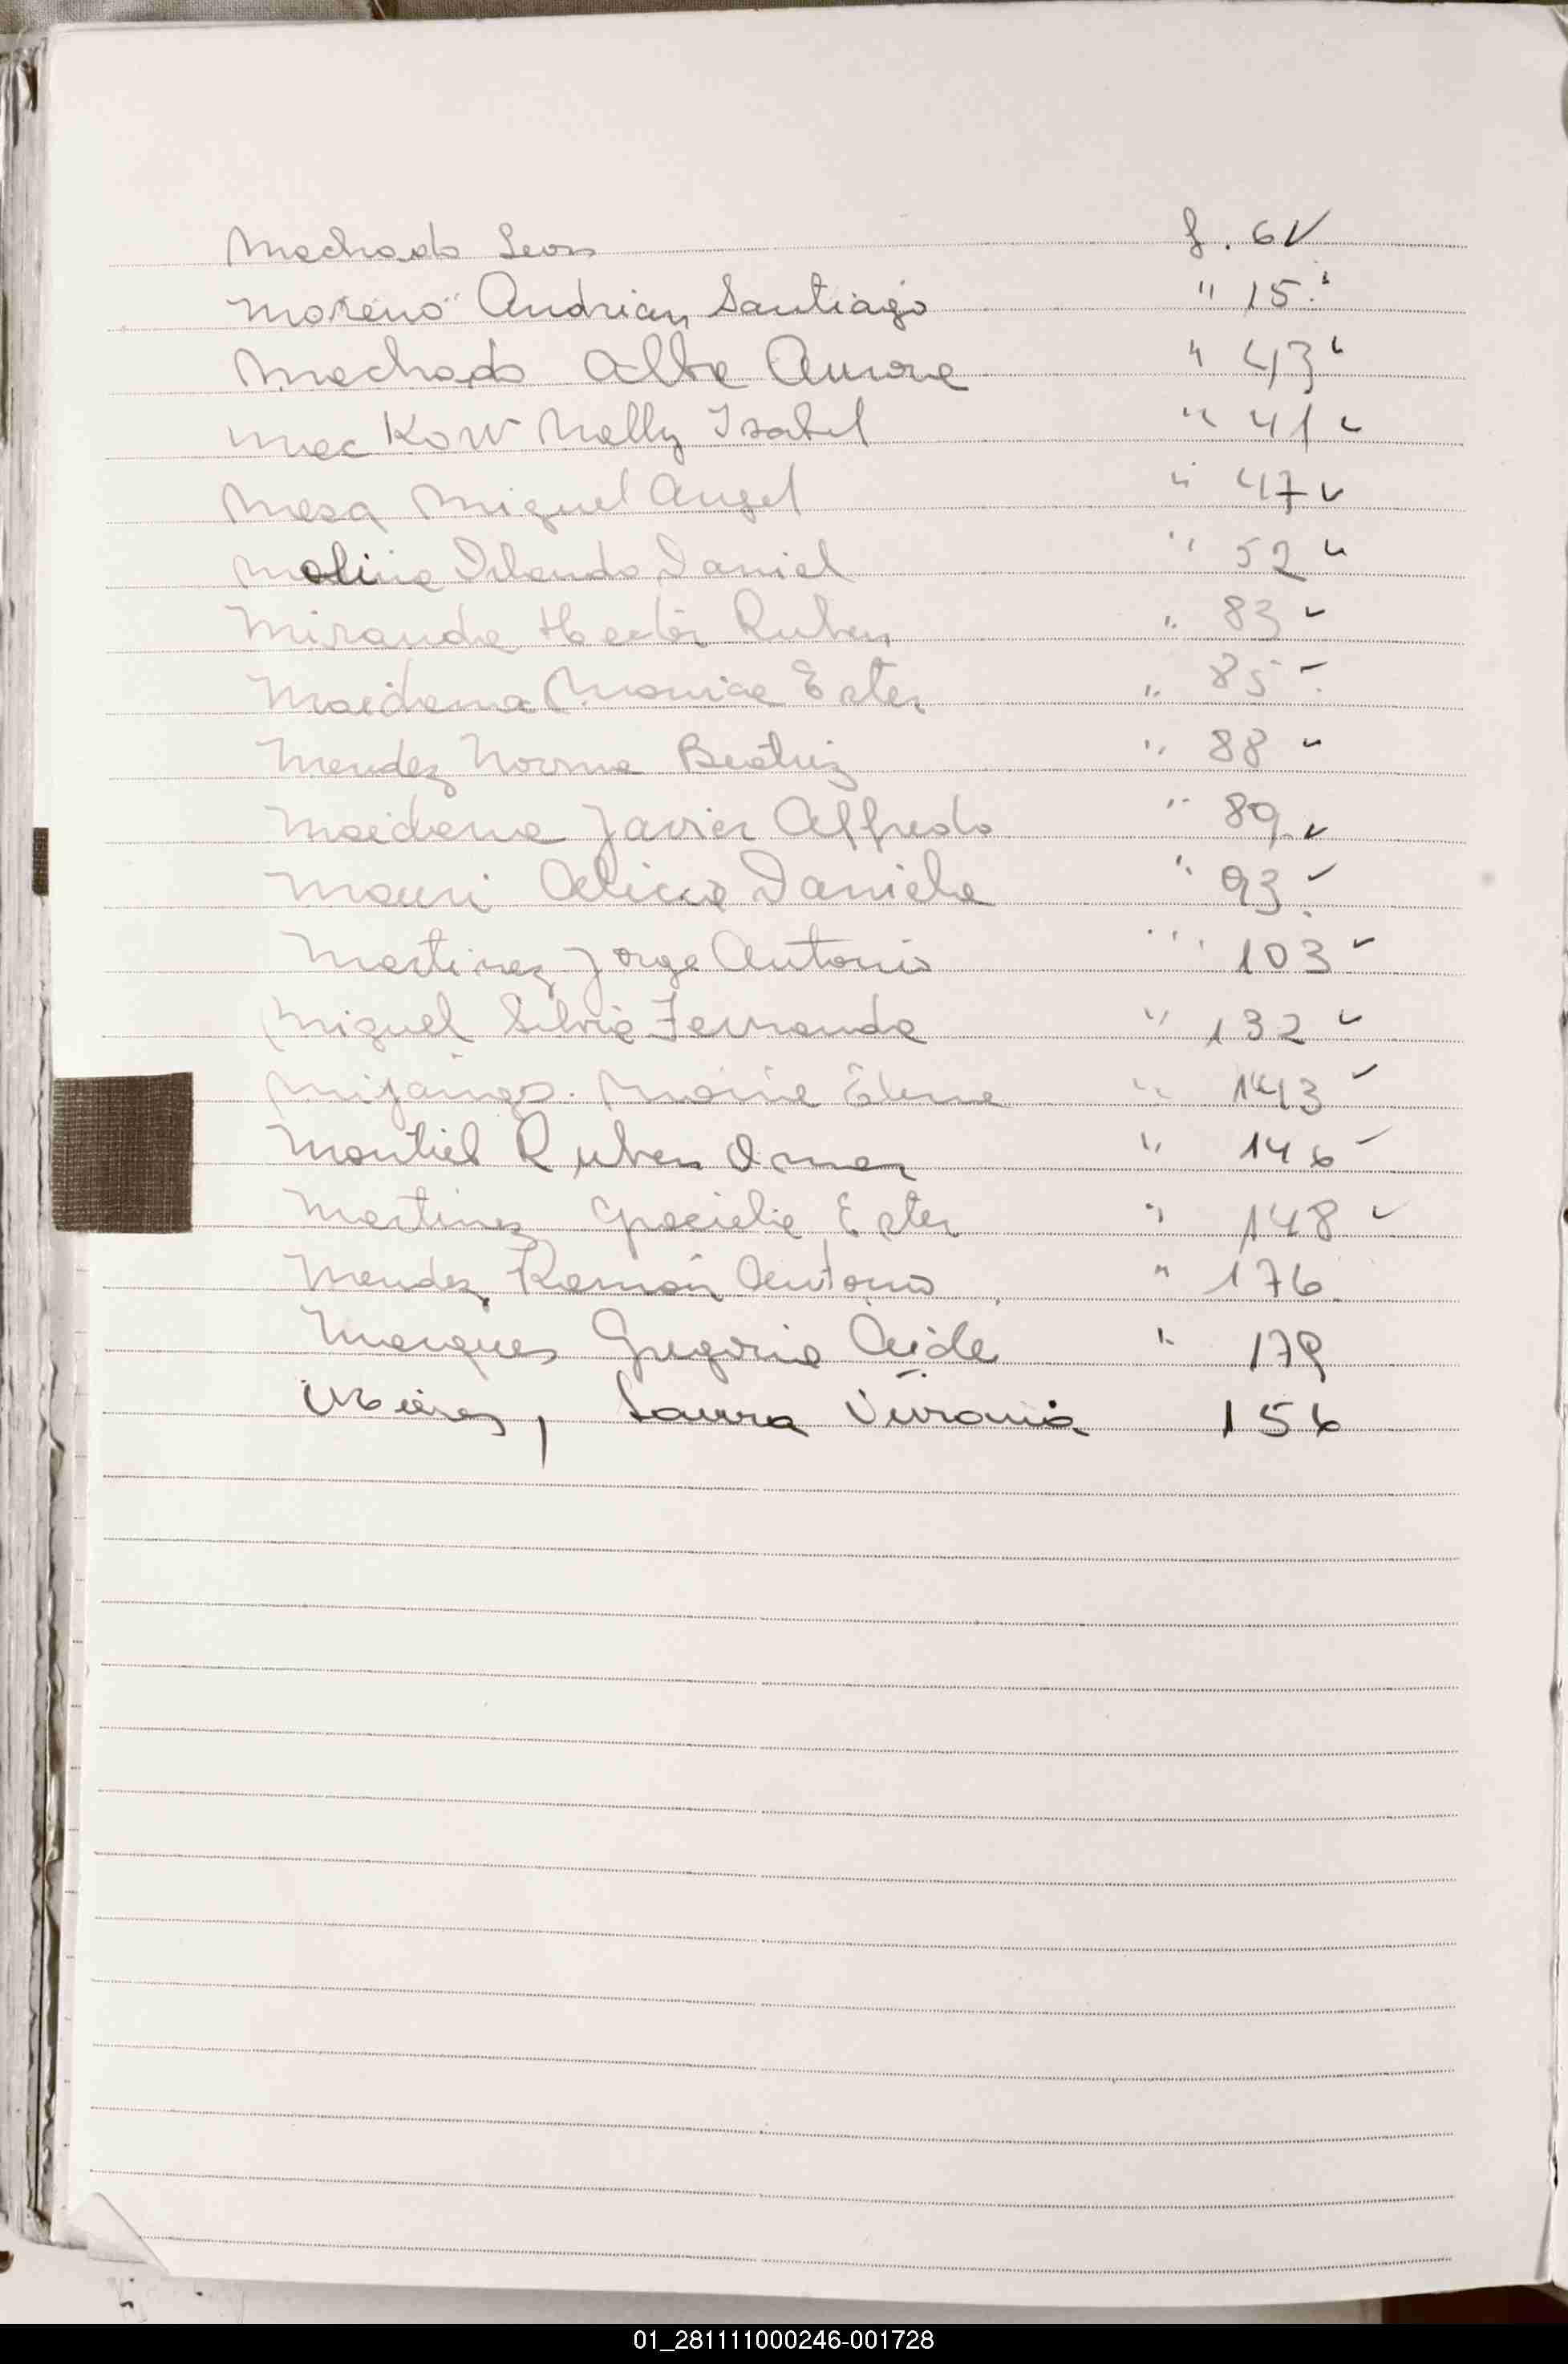 Machado Leon f. 6 ✓
Moreno Andrian Santiago " 15 ✓
Machado Alba Aurora " 43 ✓
Mac Kow Nelly Isabel " 41 ✓
Mesa Miguel Angel " 47 ✓
Molina Orlando Daniel " 52 ✓
Miranda Hector Ruben " 83 ✓
Maidana Monica Ester " 85 ✓
Mendez Norma Beatriz " 88 ✓
Maidana Javier Alfredo " 89 ✓
Mauri Alicia Daniela " 93 ✓
Martinez Jorge Antonio " 103 ✓
Miguel Silvia Fernanda " 132 ✓
Mijangos Maria Elena " 143 ✓
Montiel Ruben Omar " 146 ✓
Martinez Graciela Ester " 148 ✓
Mendez Ramón Antonio " 176
Marques Gregoria Aide " 179
Mieres, Laura Viviana 156
01_281111000246-001728